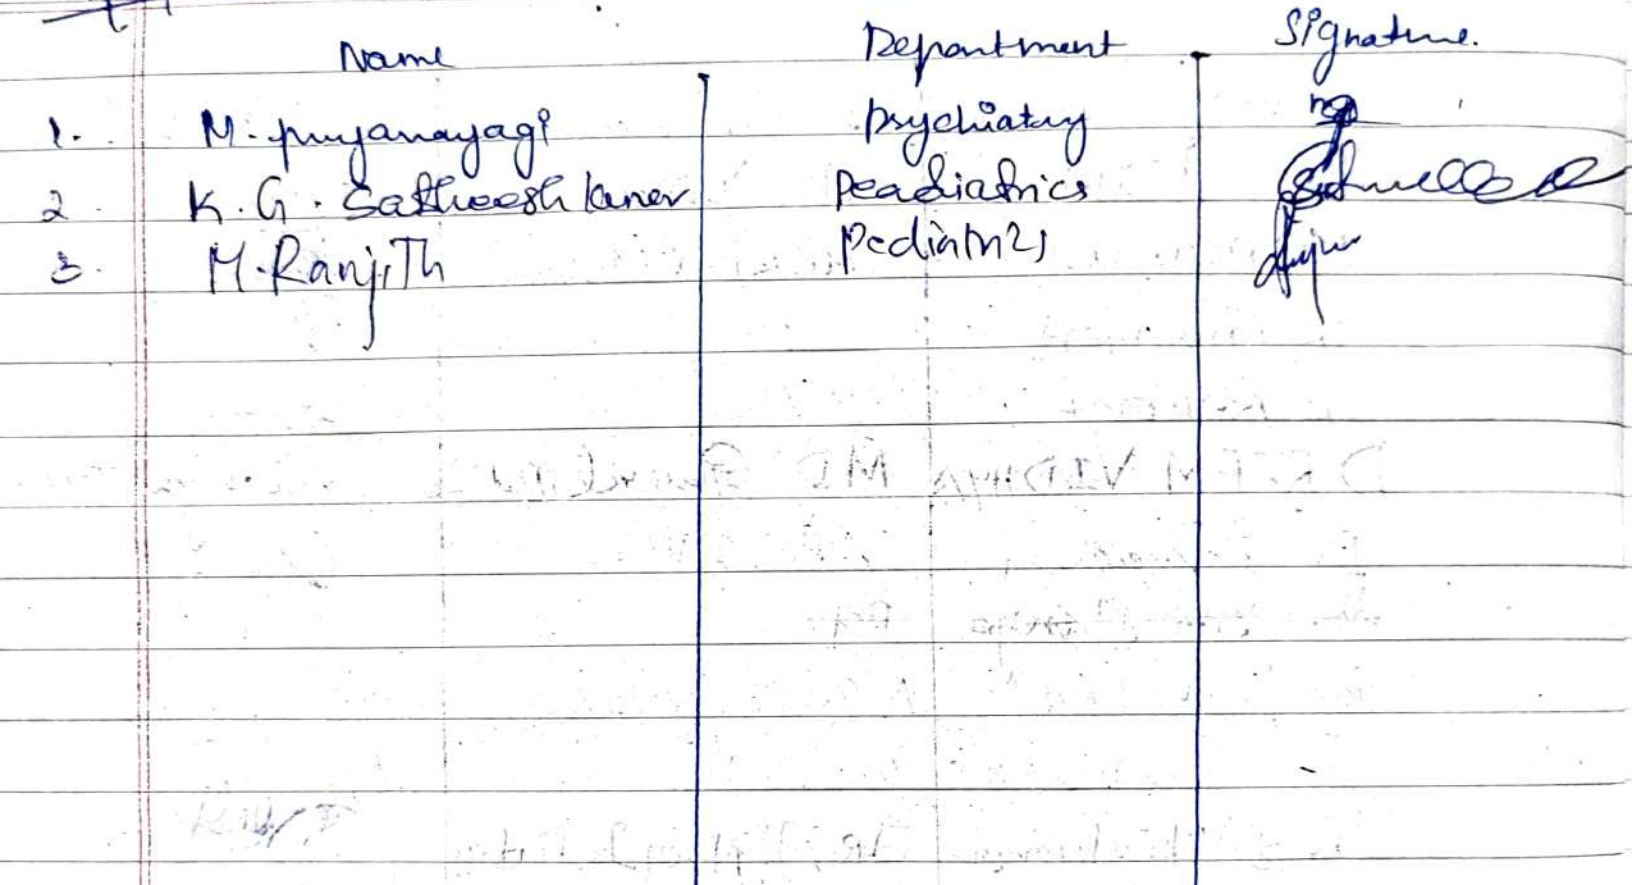 Name Department Signature.
1. M. priyanayagi Psychiatry
2. K. G. Satheesh kumar Peadiatrics
3. M. Ranjith Pediatrics